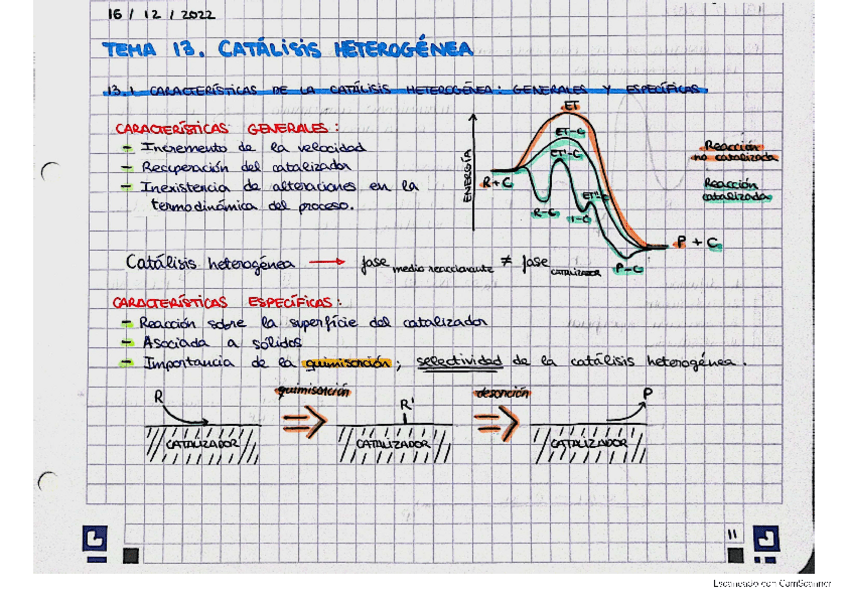 16 / 12 / 2022
TEMA 13. CATÁLISIS HETEROGÉNEA
13.1. CARACTERÍSTICAS DE LA CATÁLISIS HETEROGÉNEA: GENERALES Y ESPECÍFICAS.
CARACTERÍSTICAS GENERALES:
- Incremento de la velocidad
- Recuperación del catalizador
- Inexistencia de alteraciones en la
termodinámica del proceso.
ENERGÍA
ET
ET-C
ET'-C
ET''-C
R+C
R-C
I-C
P-C
P + C
Reacción
no catalizada
Reacción
catalizada
Catálisis heterogénea → fase medio reaccionante ≠ fase CATALIZADOR
CARACTERÍSTICAS ESPECÍFICAS:
- Reacción sobre la superfície del catalizador
- Asociada a sólidos
- Importancia de la quimisorción; selectividad de la catálisis heterogénea.
R
CATALIZADOR
quimisorción
R'
CATALIZADOR
desorción
P
CATALIZADOR
11
Escaneado con CamScanner